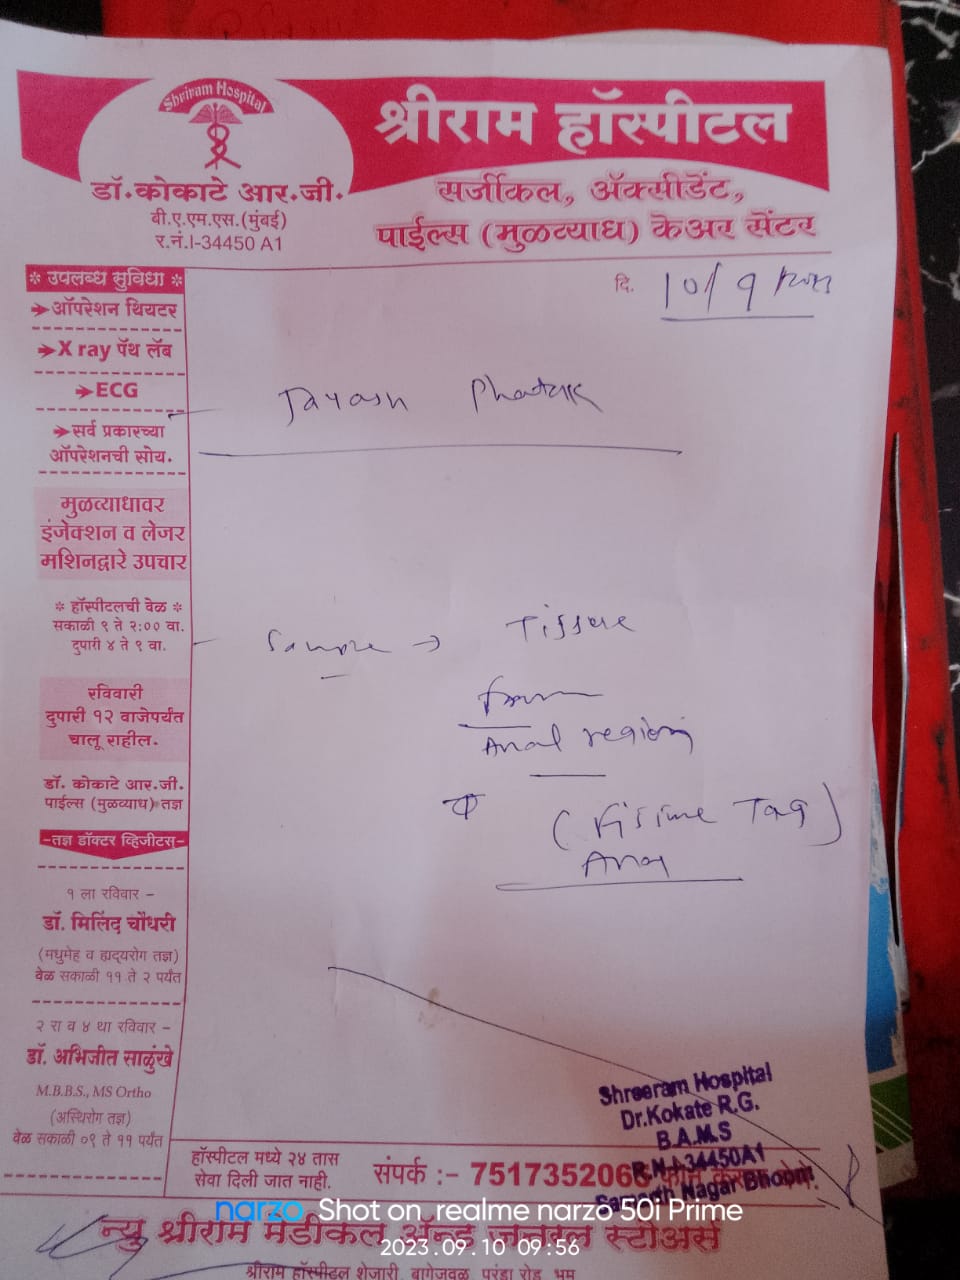 Shriram Hospital
श्रीराम हॉस्पीटल
डॉ. कोकाटे आर.जी.
बी.ए.एम.एस.(मुंबई)
र.नं.I-34450 A1
सर्जीकल, ॲक्सीडेंट,
पाईल्स (मुळव्याध) केअर सेंटर
दि. 10/9
* उपलब्ध सुविधा *
ऑपरेशन थियटर
X ray पॅथ लॅब
ECG
सर्व प्रकारच्या
ऑपरेशनची सोय.
मुळव्याधावर
इंजेक्शन व लेजर
मशिनद्वारे उपचार
* हॉस्पीटलची वेळ *
सकाळी ९ ते २:०० वा.
दुपारी ४ ते ९ वा.
रविवारी
दुपारी १२ वाजेपर्यंत
चालू राहील.
डॉ. कोकाटे आर.जी.
पाईल्स (मुळव्याध) तज्ञ
-तज्ञ डॉक्टर व्हिजीटस-
१ ला रविवार -
डॉ. मिलिंद चौधरी
(मधुमेह व ह्यदयरोग तज्ञ)
वेळ सकाळी ११ ते २ पर्यंत
२ रा व ४ था रविवार -
डॉ. अभिजीत साळुंखे
M.B.B.S., MS Ortho
(अस्थिरोग तज्ञ)
वेळ सकाळी ०९ ते ११ पर्यंत
Sample → Tissue
from
Anal region
(Fissure Tag)
Anal
Shreeram Hospital
Dr.Kokate R.G.
B.A.M.S
R.N-I-34450A1
Nagar Bhoom.
हॉस्पीटल मध्ये २४ तास
सेवा दिली जात नाही.
संपर्क :- 7517352066
न्यु श्रीराम मेडीकल ॲन्ड जनरल स्टोअर्स
श्रीराम हॉस्पीटल शेजारी, बागेजवळ, परंडा रोड, भूम
narzo Shot on realme narzo 50i Prime
2023.09.10 09:56